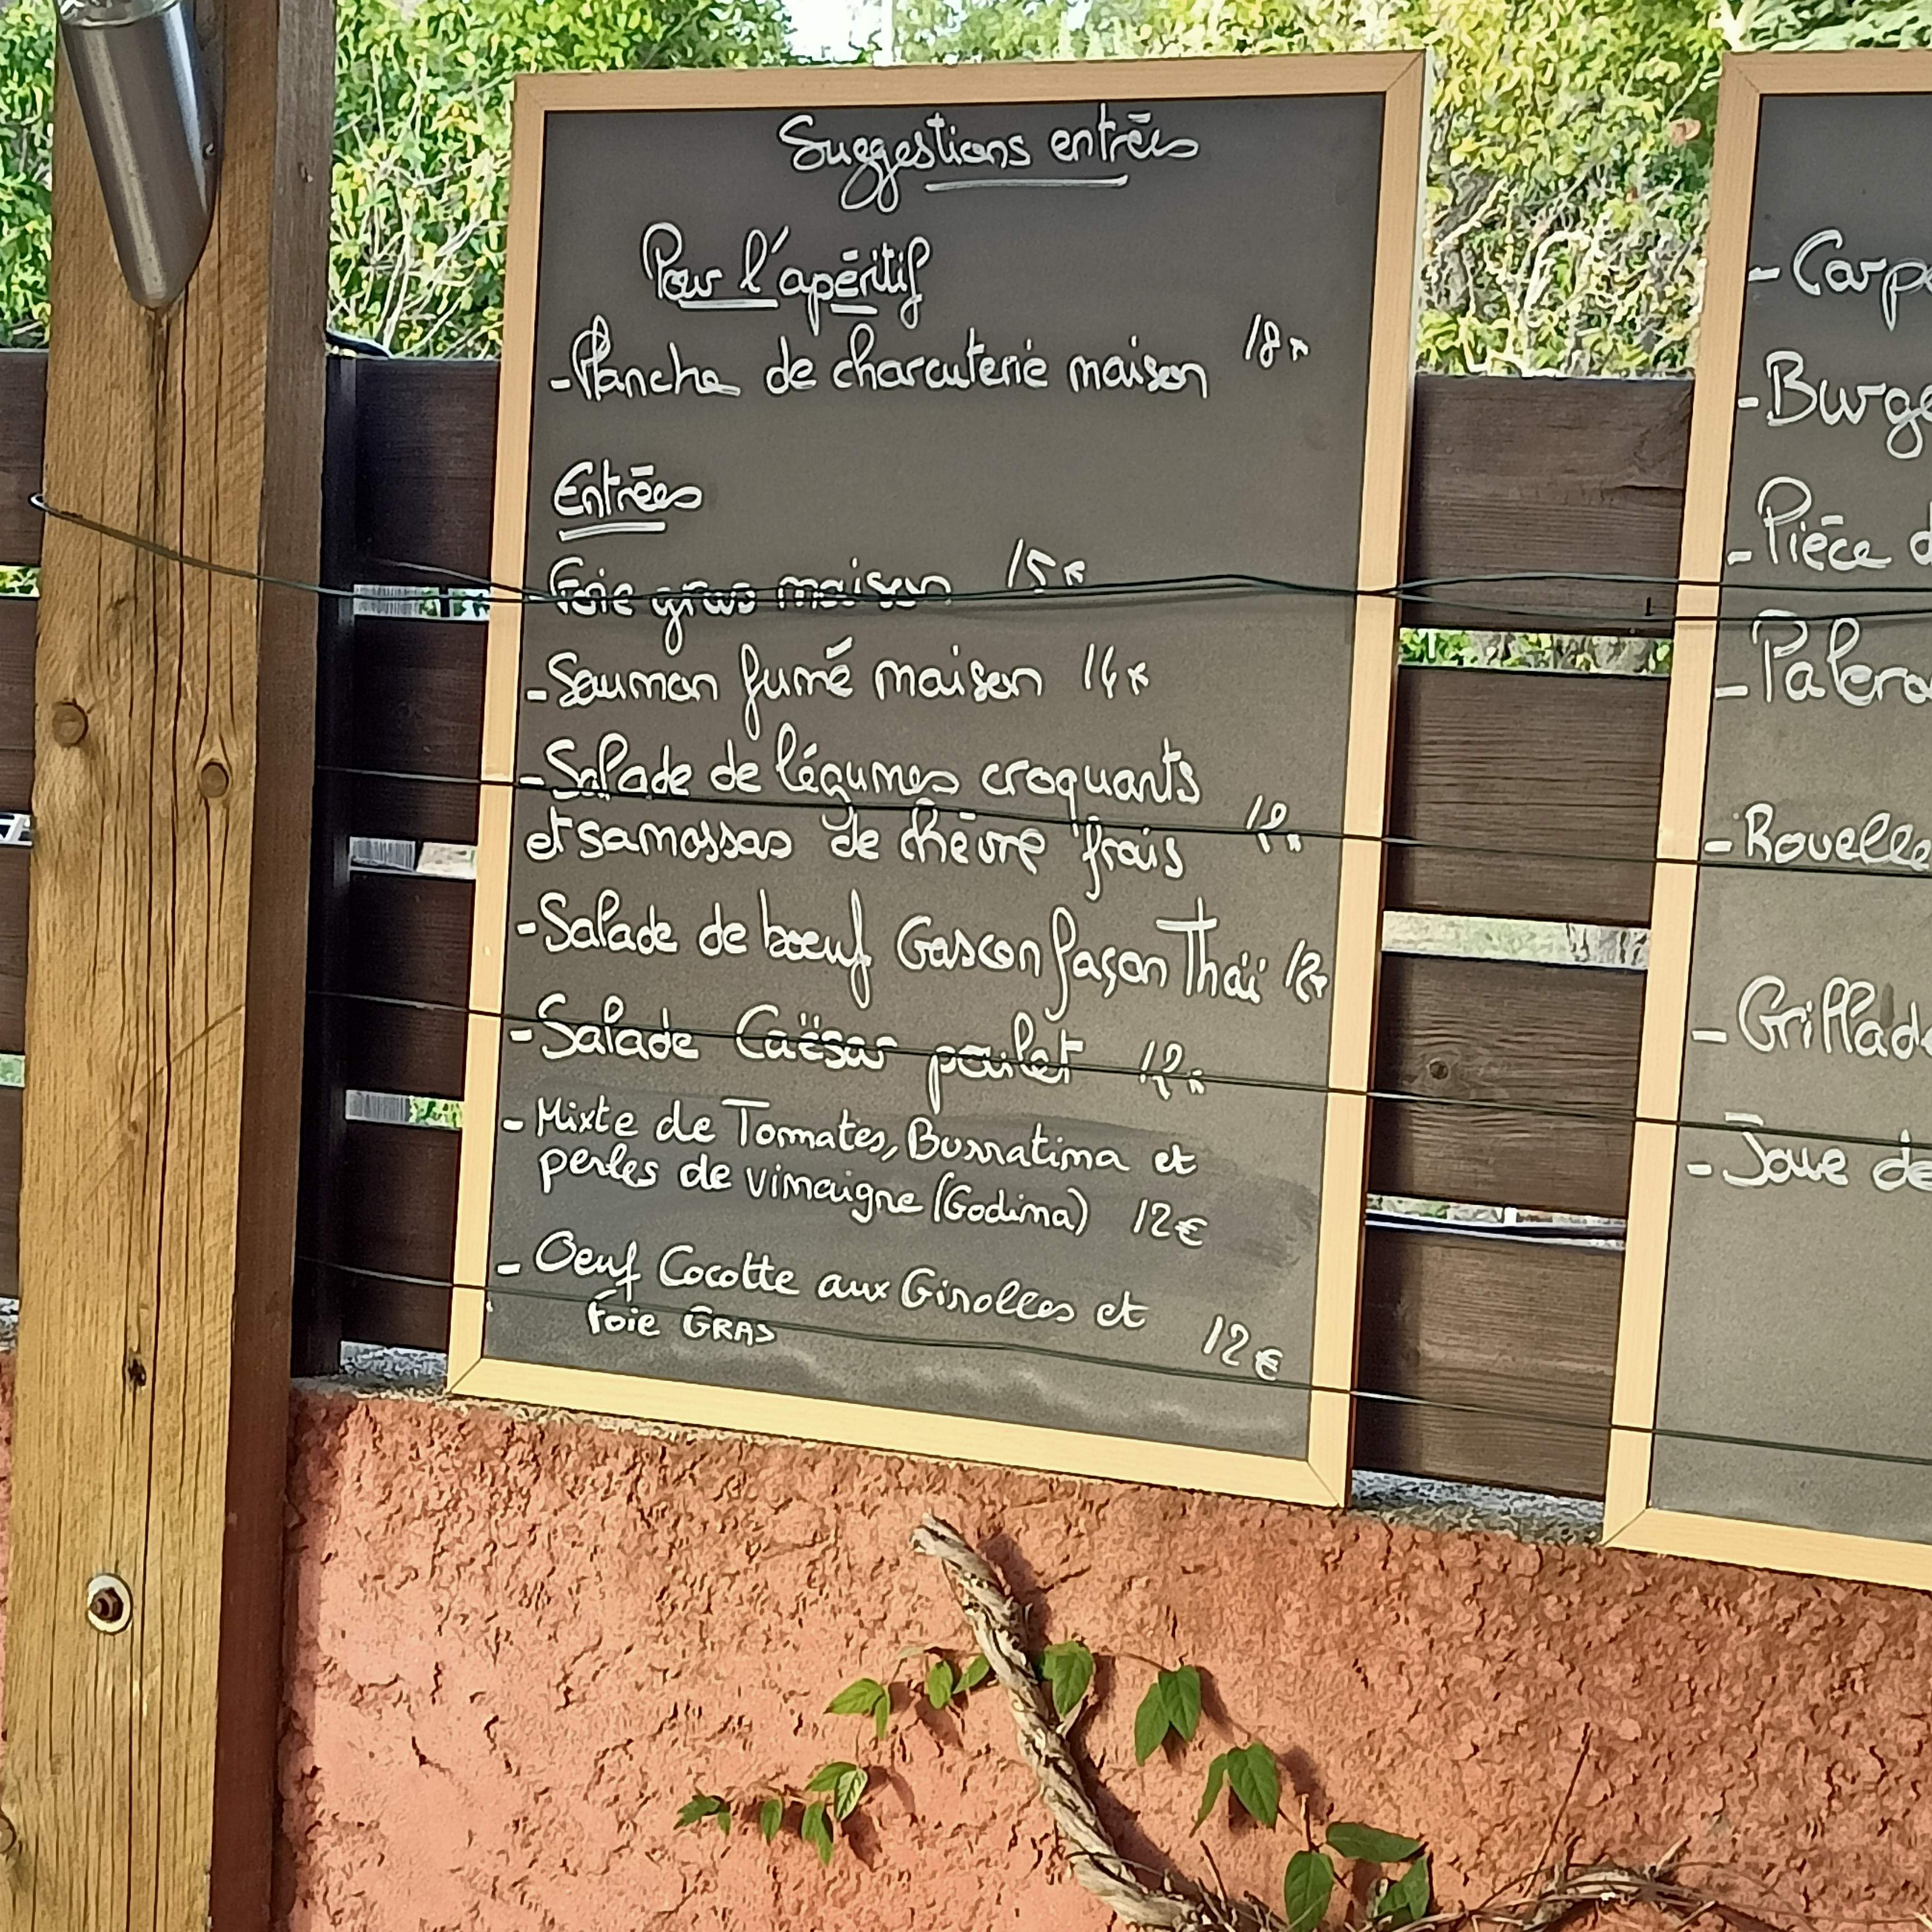 Suggestions entrées
Pour l'apéritif
- Planche de charcuterie maison 18€
Entrées
Foie gras maison 15€
- Saumon fumé maison 14€
- Salade de légumes croquants
et samossas de chèvre frais 12€
- Salade de boeuf Gascon façon Thaï
- Salade Caësar poulet 12€
- Mixte de Tomates, Burratina et
perles de vinaigre (Godina) 12€
- Oeuf Cocotte aux Girolles et
Foie GRAS 12€
- Carp
- Burge
- Pièce d
- Palero
- Rouelle
- Grillade
- Joue de